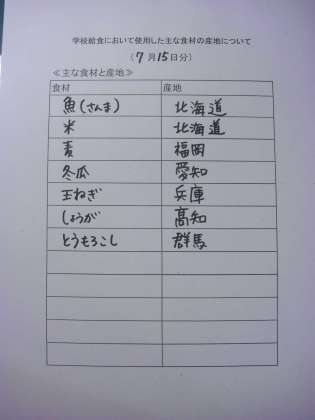 学校給食において使用した主な食材の産地について
(7月15日分)
≪主な食材と産地≫
食材 産地
魚(さんま) 北海道
米 北海道
麦 福岡
冬瓜 愛知
玉ねぎ 兵庫
しょうが 高知
とうもろこし 群馬